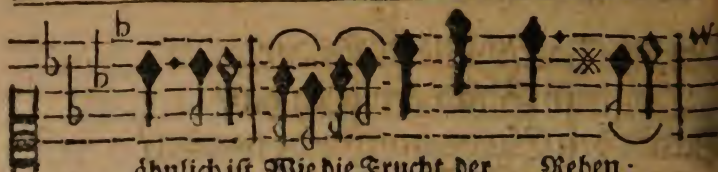 ähnlich iſt Wie die Frucht der Reben.